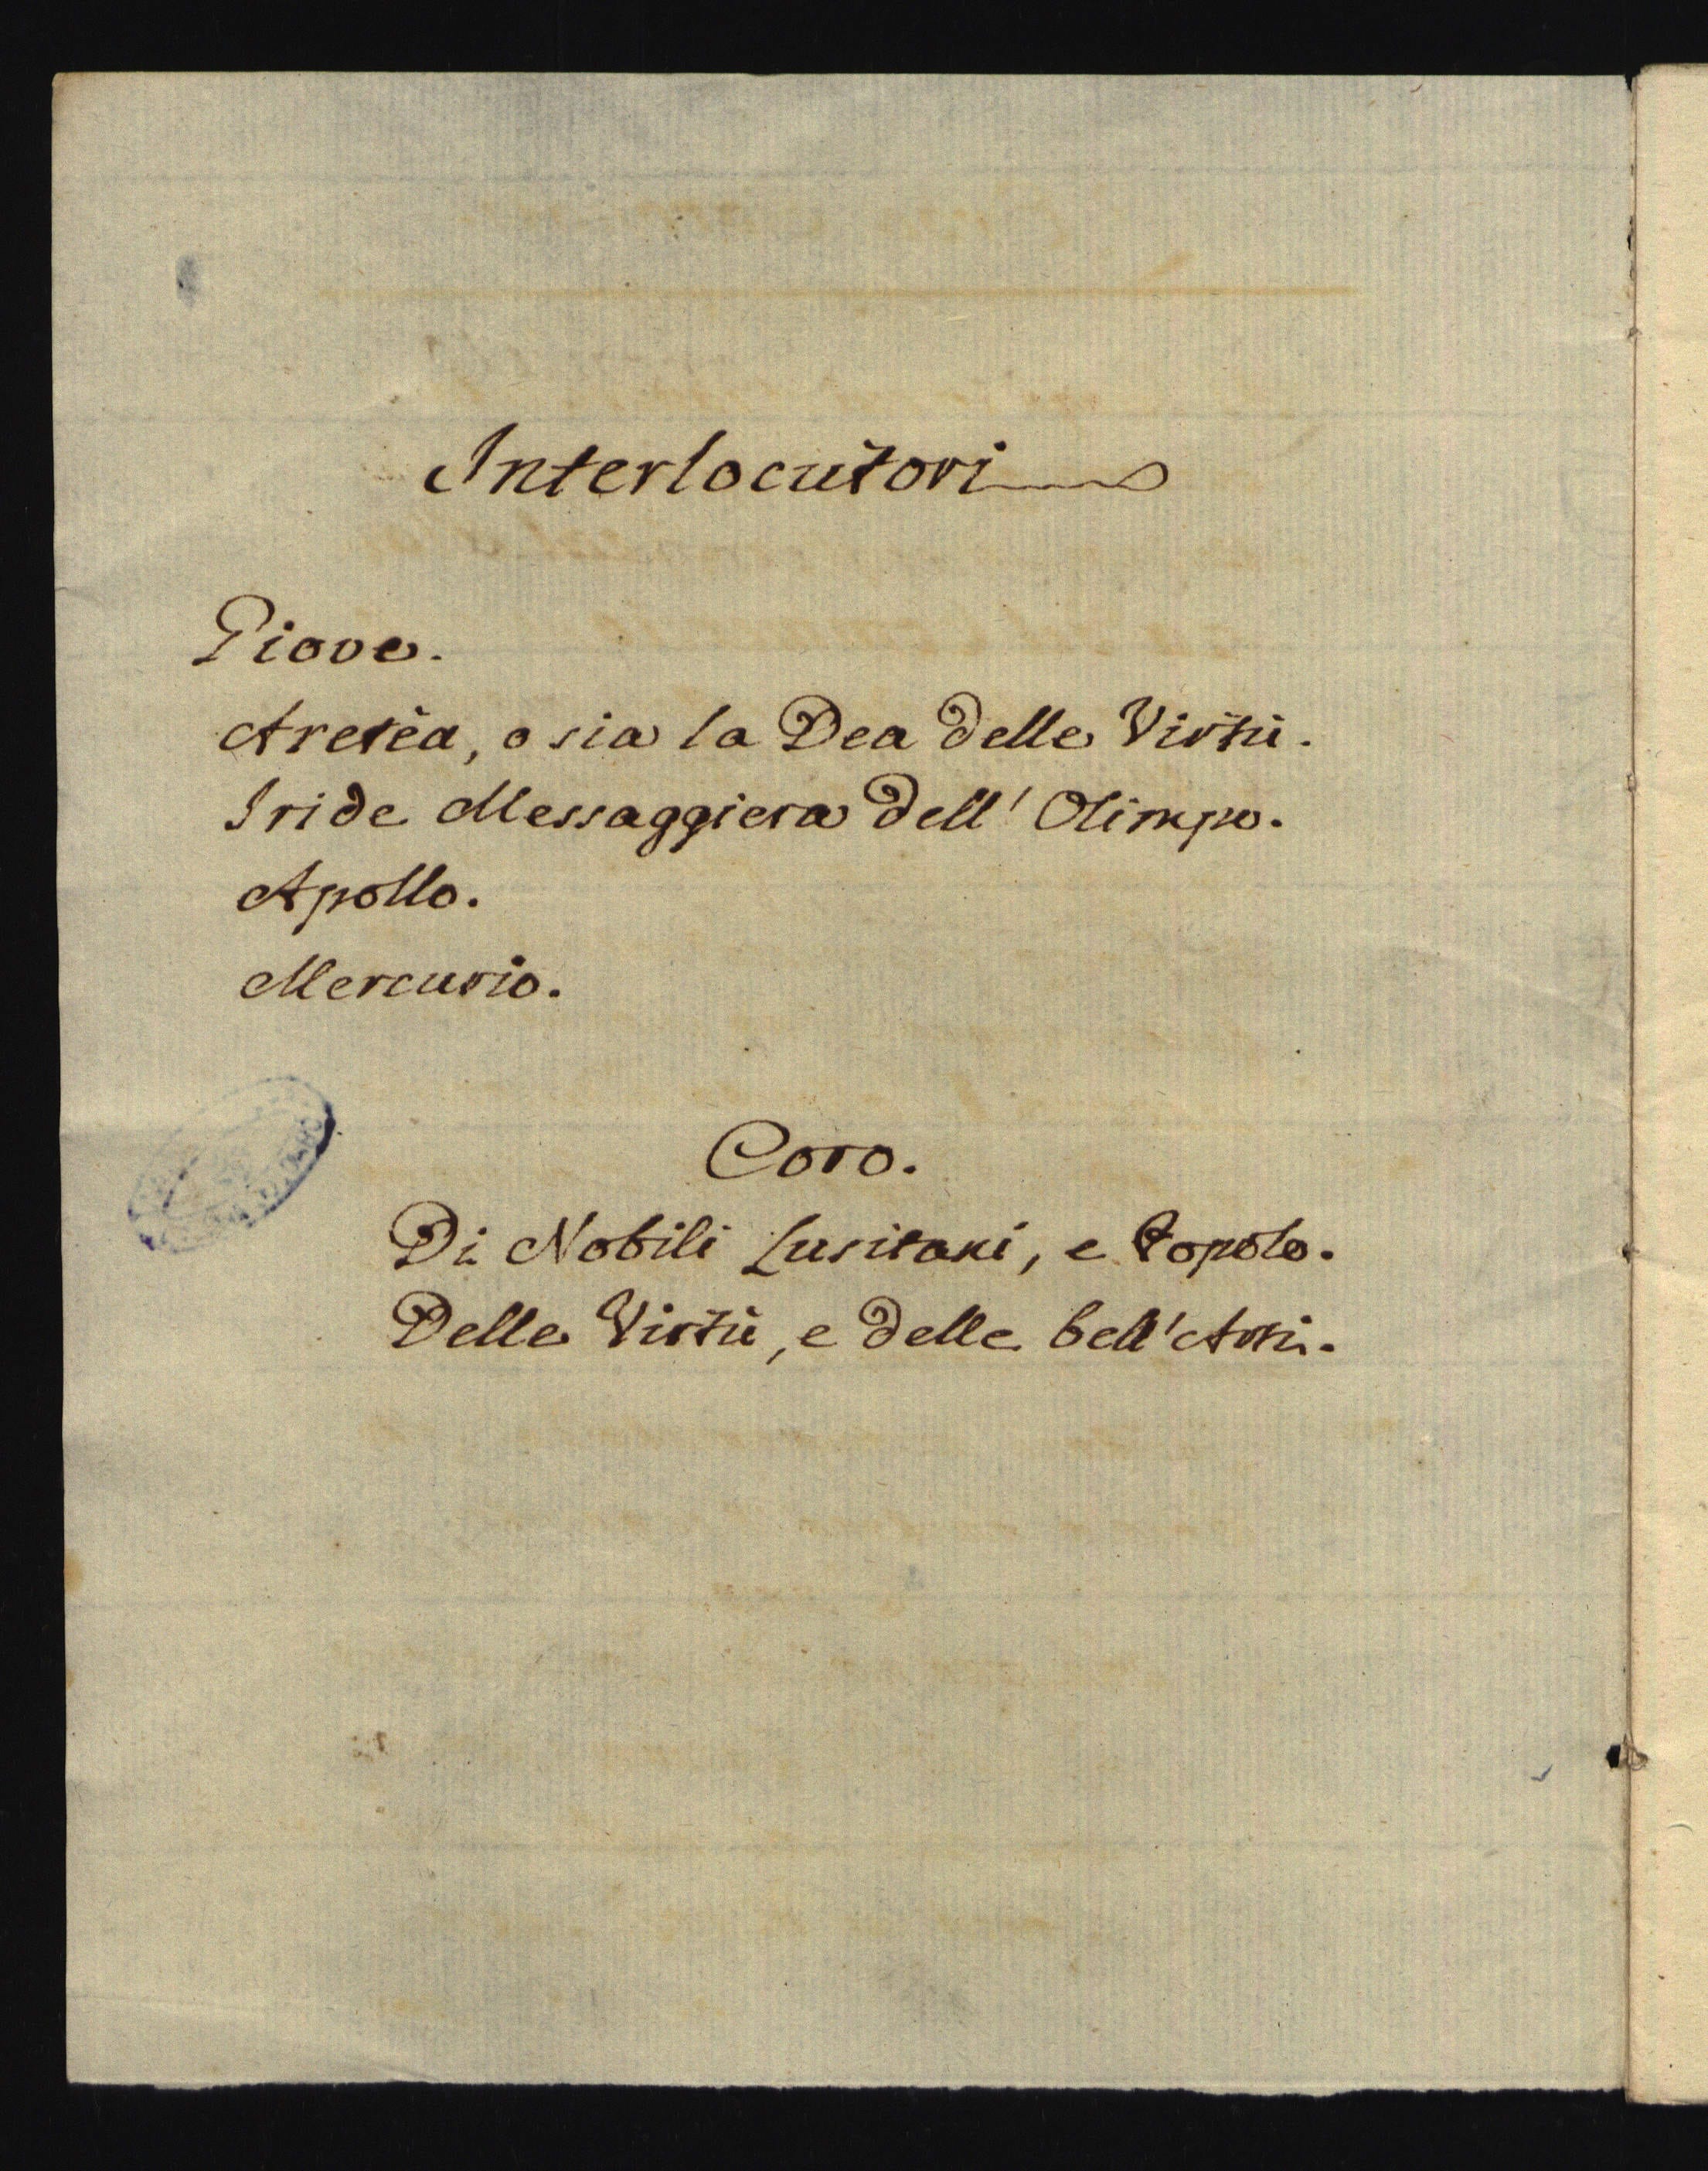 Interlocutori
Giove.
Aretèa, o sia la Dea delle Virtù.
Iride Messaggiera dell' Olimpo.
Apollo.
Mercurio.
Coro.
Di Nobili Lusitani, e Popolo.
Delle Virtù, e delle bell'Arti.